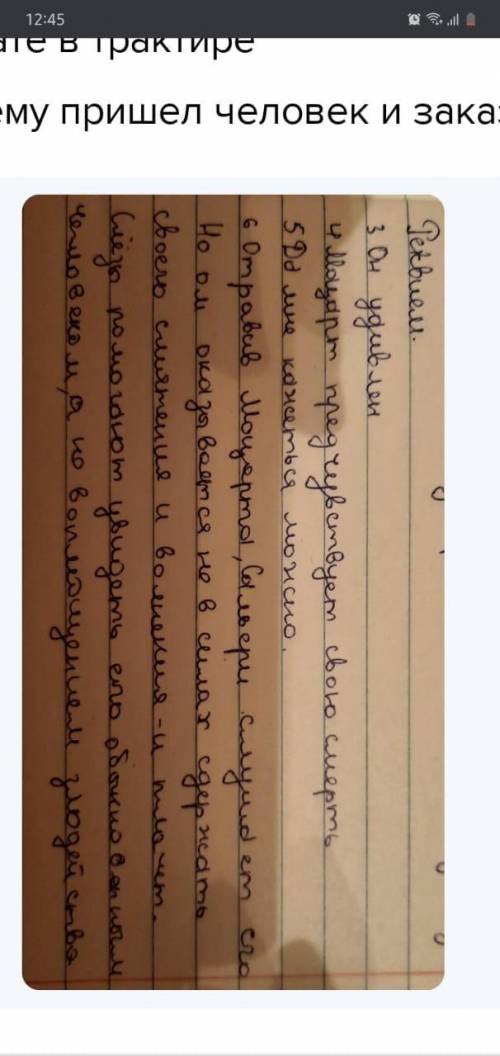 12:45
ате в трактире
ему пришел человек и заказ
Реквием.
3 Он удивлен
4 Моцарт предчувствует свою смерть
5 Да мне кажеться можно.
6 Отравив Моцарта, Сальери слушает его
Но он оказывается не в силах сдержать
своего смятения и волнения - и плачет.
Слёзы помогают увидеть его обыкновенным
человеком, а не воплощением злодейства